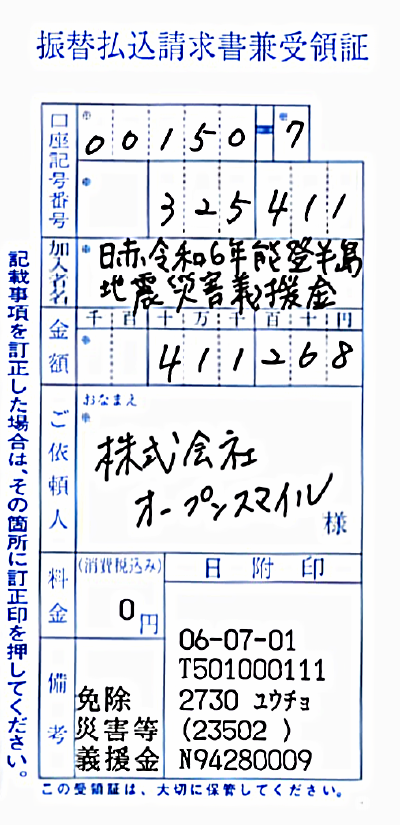 振替払込請求書兼受領証
口座記号番号
※
00150-7
※
※
325411
加入者名
※
日赤令和6年能登半島
地震災害義援金
金額
千百十万千百十円
※
411268
ご依頼人
おなまえ
※
株式会社
オープンスマイル
様
料金
(消費税込み)
0円
備考
免除
災害等
義援金
日附印
06-07-01
T501000111
2730 ユウチョ
(23502 )
N94280009
記載事項を訂正した場合は、その箇所に訂正印を押してください。
この受領証は、大切に保管してください。